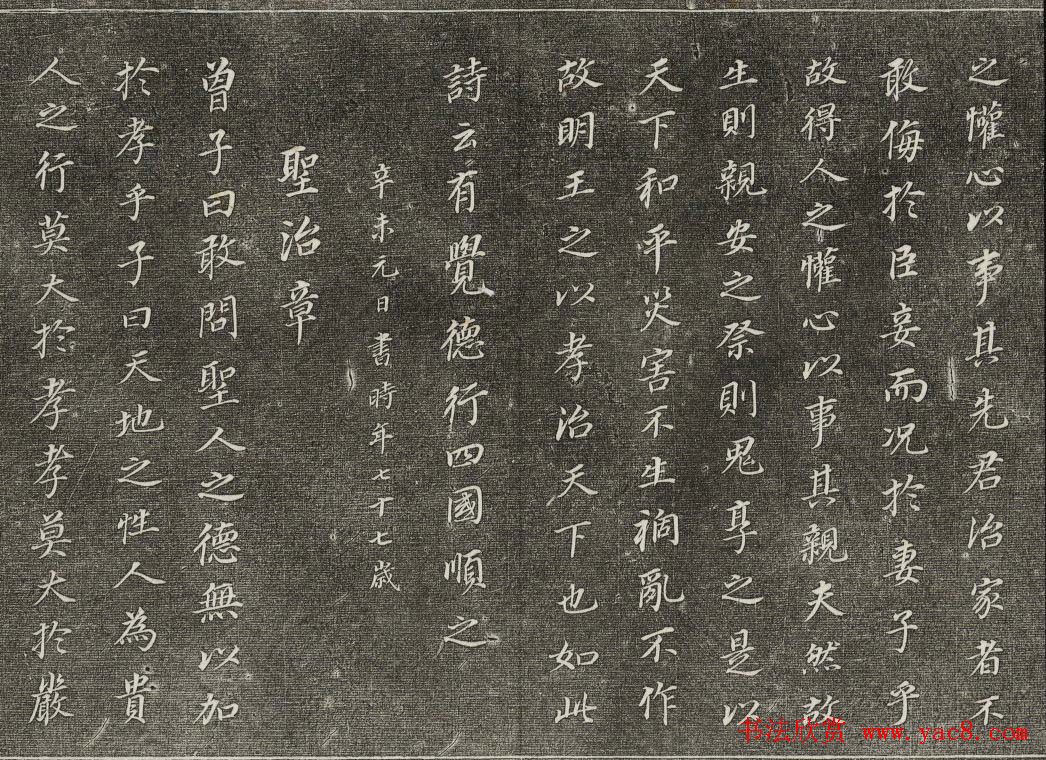 之懽心以事其先君治家者不
敢侮於臣妾而况於妻子乎
故得人之懽心以事其親夫然故
生則親安之祭則鬼享之是以
天下和平災害不生禍亂不作
故明王之以孝治天下也如此
詩云有覺德行四國順之
辛未元日書時年七十七歲
聖治章
曾子曰敢問聖人之德無以加
於孝乎子曰天地之性人為貴
人之行莫大於孝孝莫大於嚴
书法欣赏 www.yac8.com